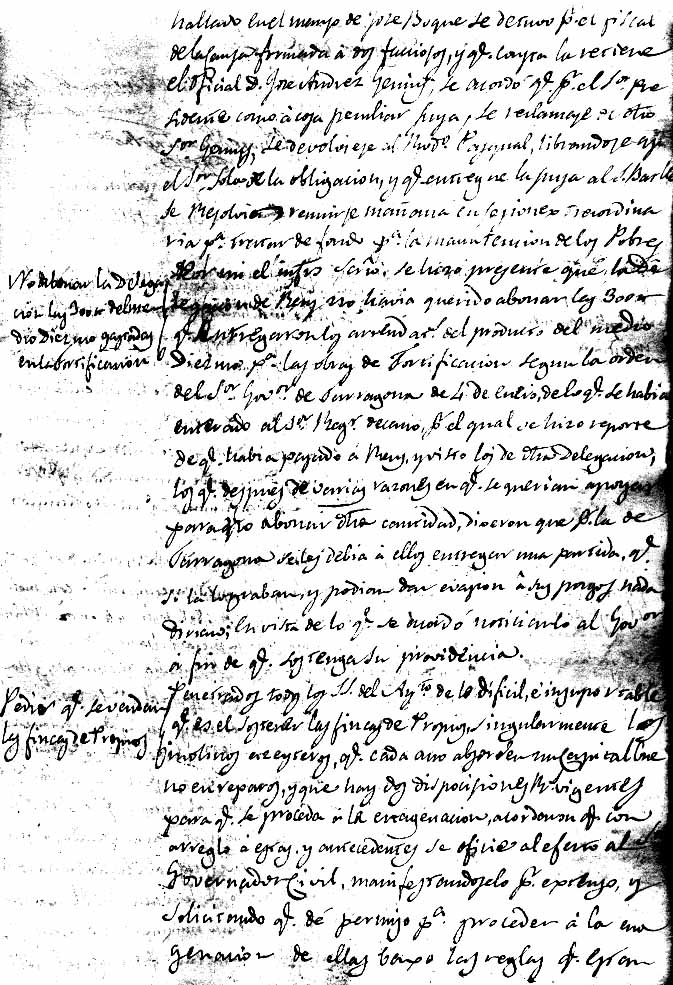 hallado en el tiempo de Jose Boque se detuvo pr. el fiscal
de la causa formada à dos facciosos, y qe. contra la retiene
el oficial D. Jose Andrez se acordó qe. pr. el Sor. Pre
sidente como à cosa peculiar suya, se reclamase de dho
Sor. se devolviese al Pasqual, librandose
el Sor. Sola de la obligacion, y qe. entregue la suya al S.
Se Resolvio reunirse mañana en sesion extraordina
ria pa. tratar de fondo pa. la manutencion de los Pobres
Por mi el infro. Serio. se hizo presente que la De
legacion de Reus no havia querido abonar las 300
qe. entregaron los arrendars. del producto del medio
Diezmo pa. las obras de Fortificacion segun la orden
del Sor. Govor. de Tarragona de 4 de Enero, de lo qe. se habia
enterado al Sr. Regr. decano, pr. el qual se hizo reporte
de qe. habia pasado à Reus, y visto los de dha Delegacion,
los qe. despues de varias razones en qe. se querian apoyar
para no abonar dha cantidad, dixeron que pr. la de
Tarragona se les debia à ellos entregar una partida, qe.
si la lograban, y podian dar evasion à sus pagos nada
dirian; En vista de lo qe. se acordó noticiarlo al Govor
à fin de qe. sostenga su providencia.
Penetrados todos los SS. del Aymto. de lo dificil, è insuportable
qe. es el sostener las fincas de Propios, singularmente los
molinos azeyteros, qe. cada año absorben un Capital bue
no en reparos, y que hay dos disposiciones Rs. vigentes
para qe. se proceda à la enagenacion, acordaron qe. con
arreglo à estas, y antecedentes se oficie al efecto al Sr
Governador Civil, manifestandoselo pr. extenso, y
solicitando qe. dé permiso pa. proceder à la ena
genacion de ellas baxo las reglas qe. estan
No abonar la Delega
cion las 300 del me
dio Diezmo gastadas
en la fortificacion
Pedir qe. se vendan
las fincas de Propios